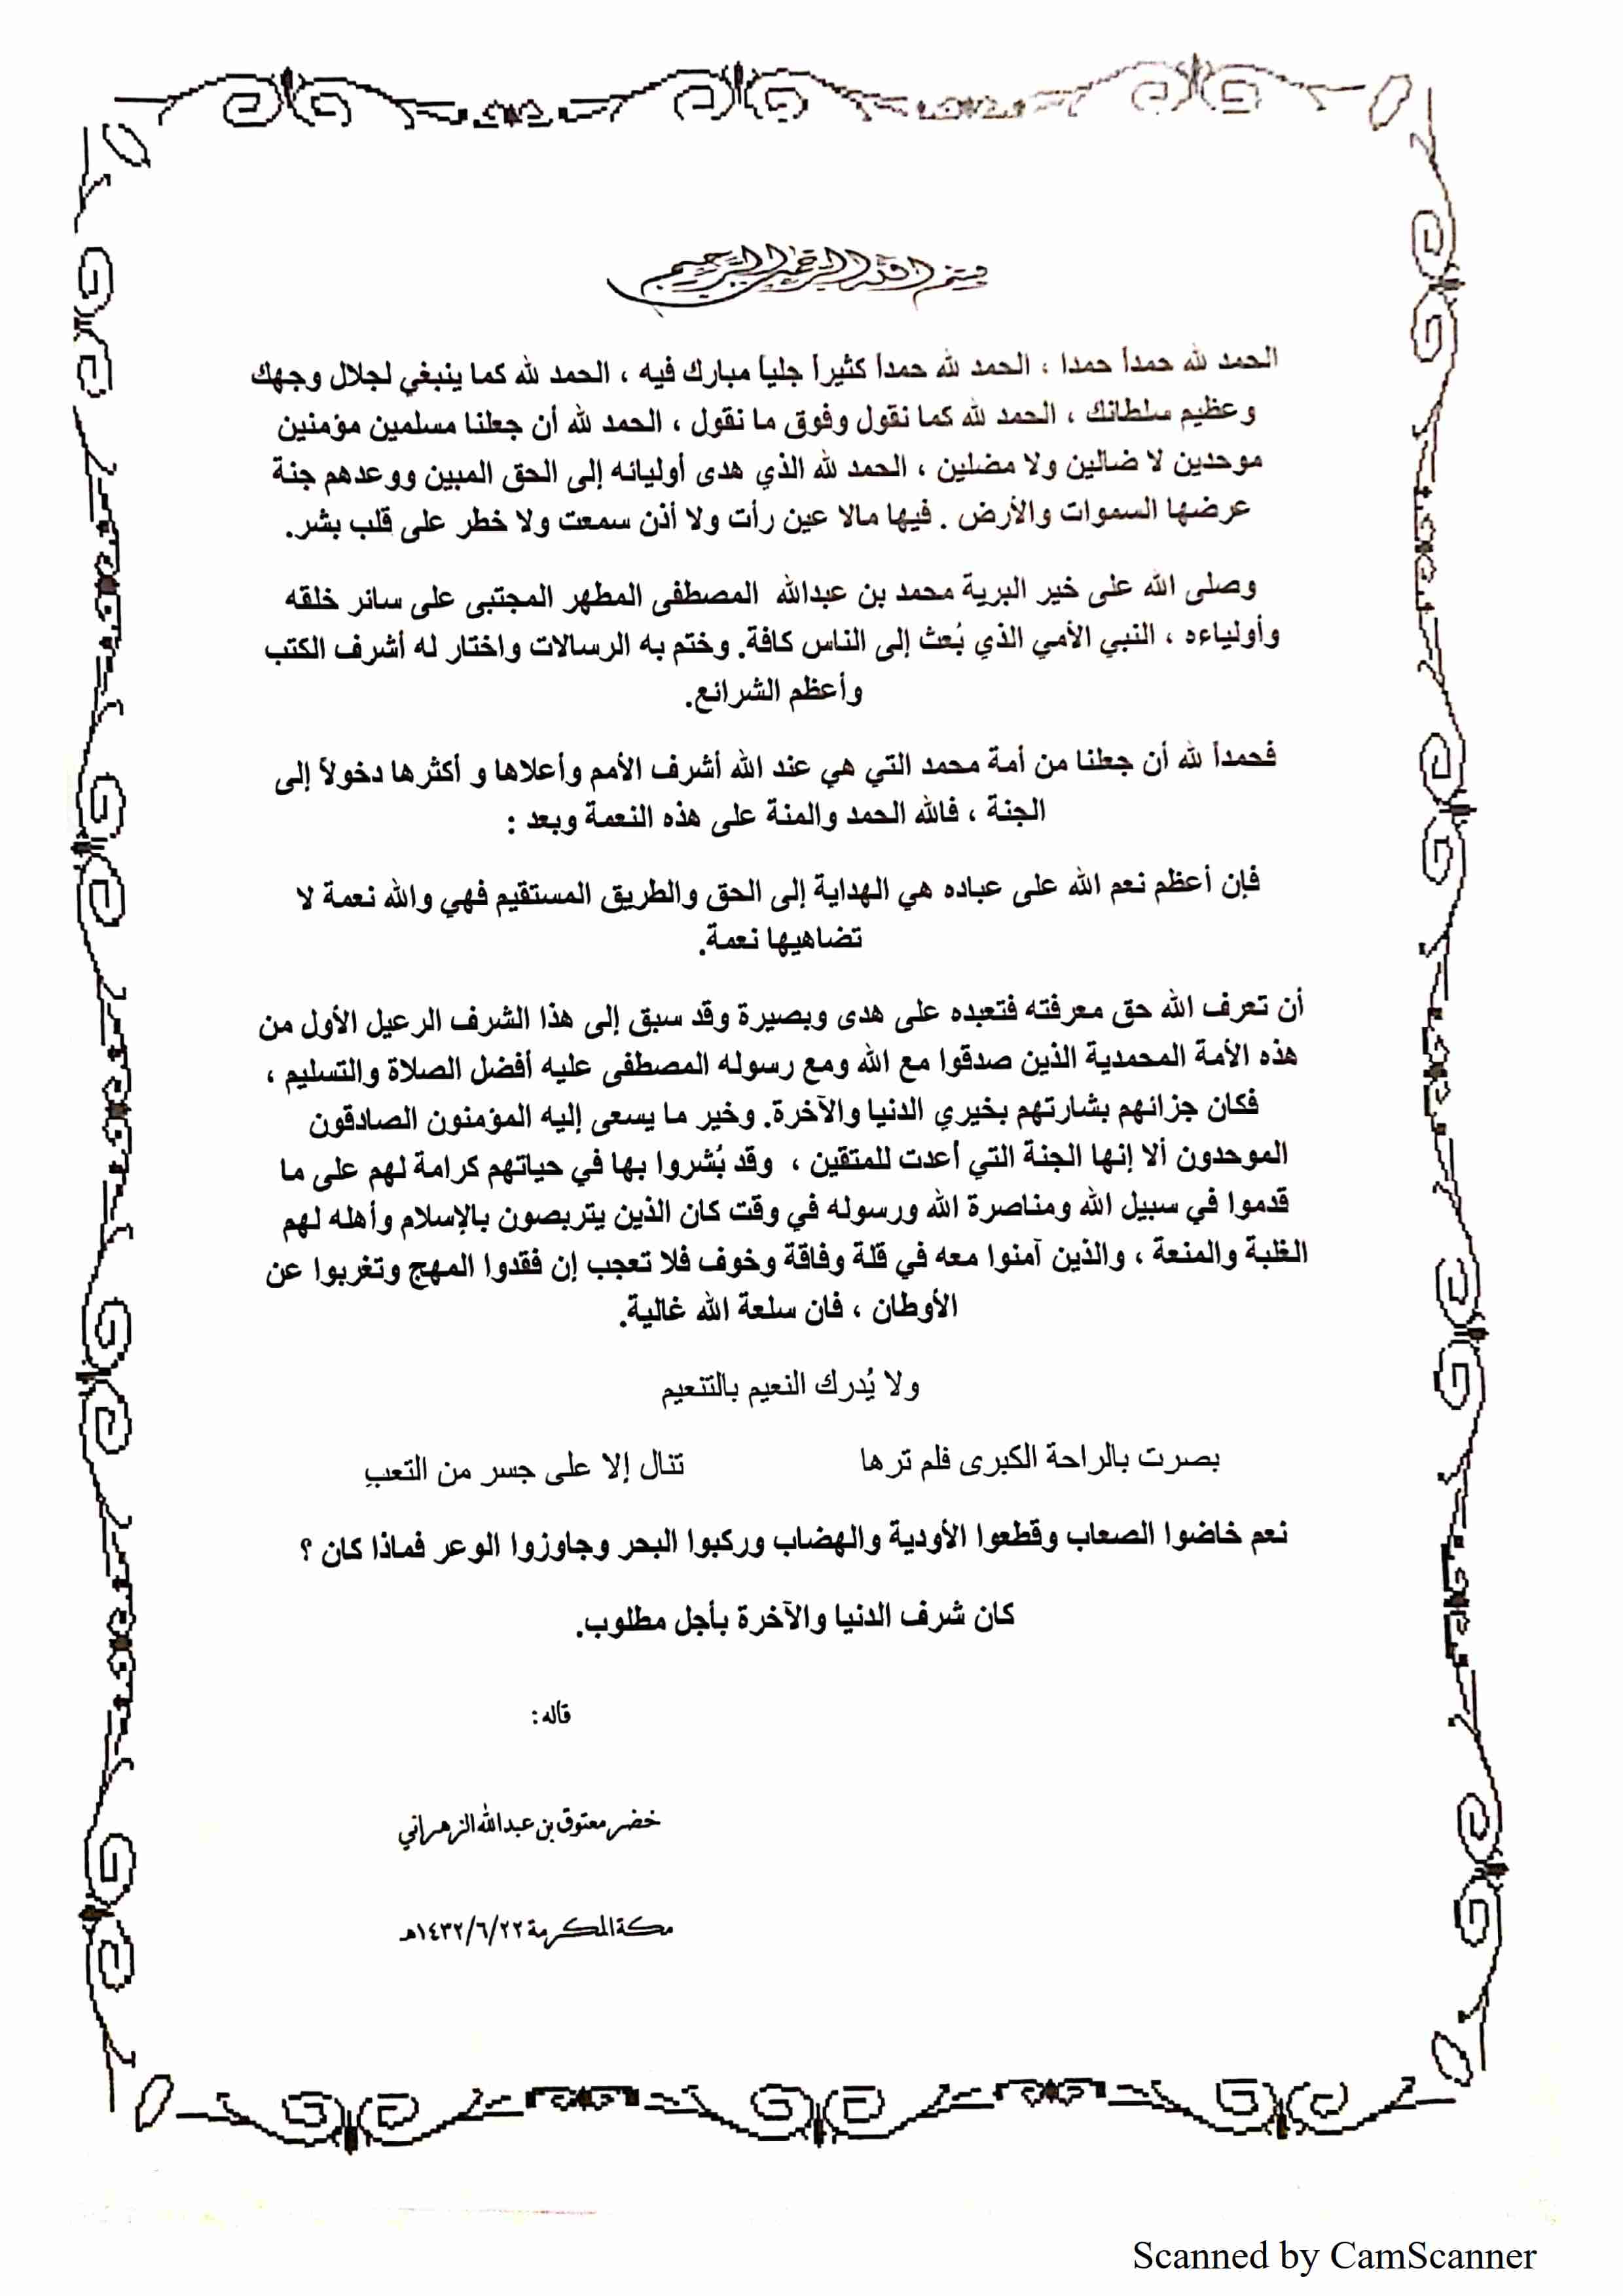 بسم الله الرحمن الرحيم
الحمد لله حمداً حمدا ، الحمد لله حمداً كثيراً جلياً مبارك فيه ، الحمد لله كما ينبغي لجلال وجهك
وعظيم سلطانك ، الحمد لله كما نقول وفوق ما نقول ، الحمد لله أن جعلنا مسلمين مؤمنين
موحدين لا ضالين ولا مضلين ، الحمد لله الذي هدى أوليائه إلى الحق المبين ووعدهم جنة
عرضها السموات والأرض . فيها مالا عين رأت ولا أذن سمعت ولا خطر على قلب بشر.
وصلى الله على خير البرية محمد بن عبدالله المصطفى المطهر المجتبى على سائر خلقه
وأولياءه ، النبي الأمي الذي بُعث إلى الناس كافة. وختم به الرسالات واختار له أشرف الكتب
وأعظم الشرائع.
فحمداً لله أن جعلنا من أمة محمد التي هي عند الله أشرف الأمم وأعلاها و أكثرها دخولاً إلى
الجنة ، فالله الحمد والمنة على هذه النعمة وبعد :
فإن أعظم نعم الله على عباده هي الهداية إلى الحق والطريق المستقيم فهي والله نعمة لا
تضاهيها نعمة.
أن تعرف الله حق معرفته فتعبده على هدى وبصيرة وقد سبق إلى هذا الشرف الرعيل الأول من
هذه الأمة المحمدية الذين صدقوا مع الله ومع رسوله المصطفى عليه أفضل الصلاة والتسليم ،
فكان جزائهم بشارتهم بخيري الدنيا والآخرة. وخير ما يسعى إليه المؤمنون الصادقون
الموحدون ألا إنها الجنة التي أعدت للمتقين ، وقد بُشروا بها في حياتهم كرامة لهم على ما
قدموا في سبيل الله ومناصرة الله ورسوله في وقت كان الذين يتربصون بالإسلام وأهله لهم
الغلبة والمنعة ، والذين آمنوا معه في قلة وفاقة وخوف فلا تعجب إن فقدوا المهج وتغربوا عن
الأوطان ، فان سلعة الله غالية.
ولا يُدرك النعيم بالتنعيم
بصرت بالراحة الكبرى فلم ترها تنال إلا على جسر من التعبِ
نعم خاضوا الصعاب وقطعوا الأودية والهضاب وركبوا البحر وجاوزوا الوعر فماذا كان ؟
كان شرف الدنيا والآخرة بأجل مطلوب.
قاله:
خضر معتوق بن عبدالله الزهراني
مكة المكرمة ١٤٣٢/٦/٢٢هـ
Scanned by CamScanner